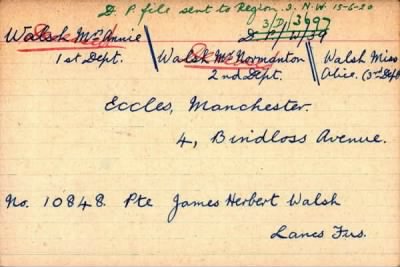 D. P. file sent to Region. 3. N.W 15-6-20
3/D/3997
Walsh Mrs Annie
1st Dept.
Walsh Mr Normanton
2nd Dept.
Walsh Miss
Alice. (3rd Dept
Eccles, Manchester.
4, Bindloss Avenue.
No. 10848. Pte James Herbert Walsh
Lancs Fus.